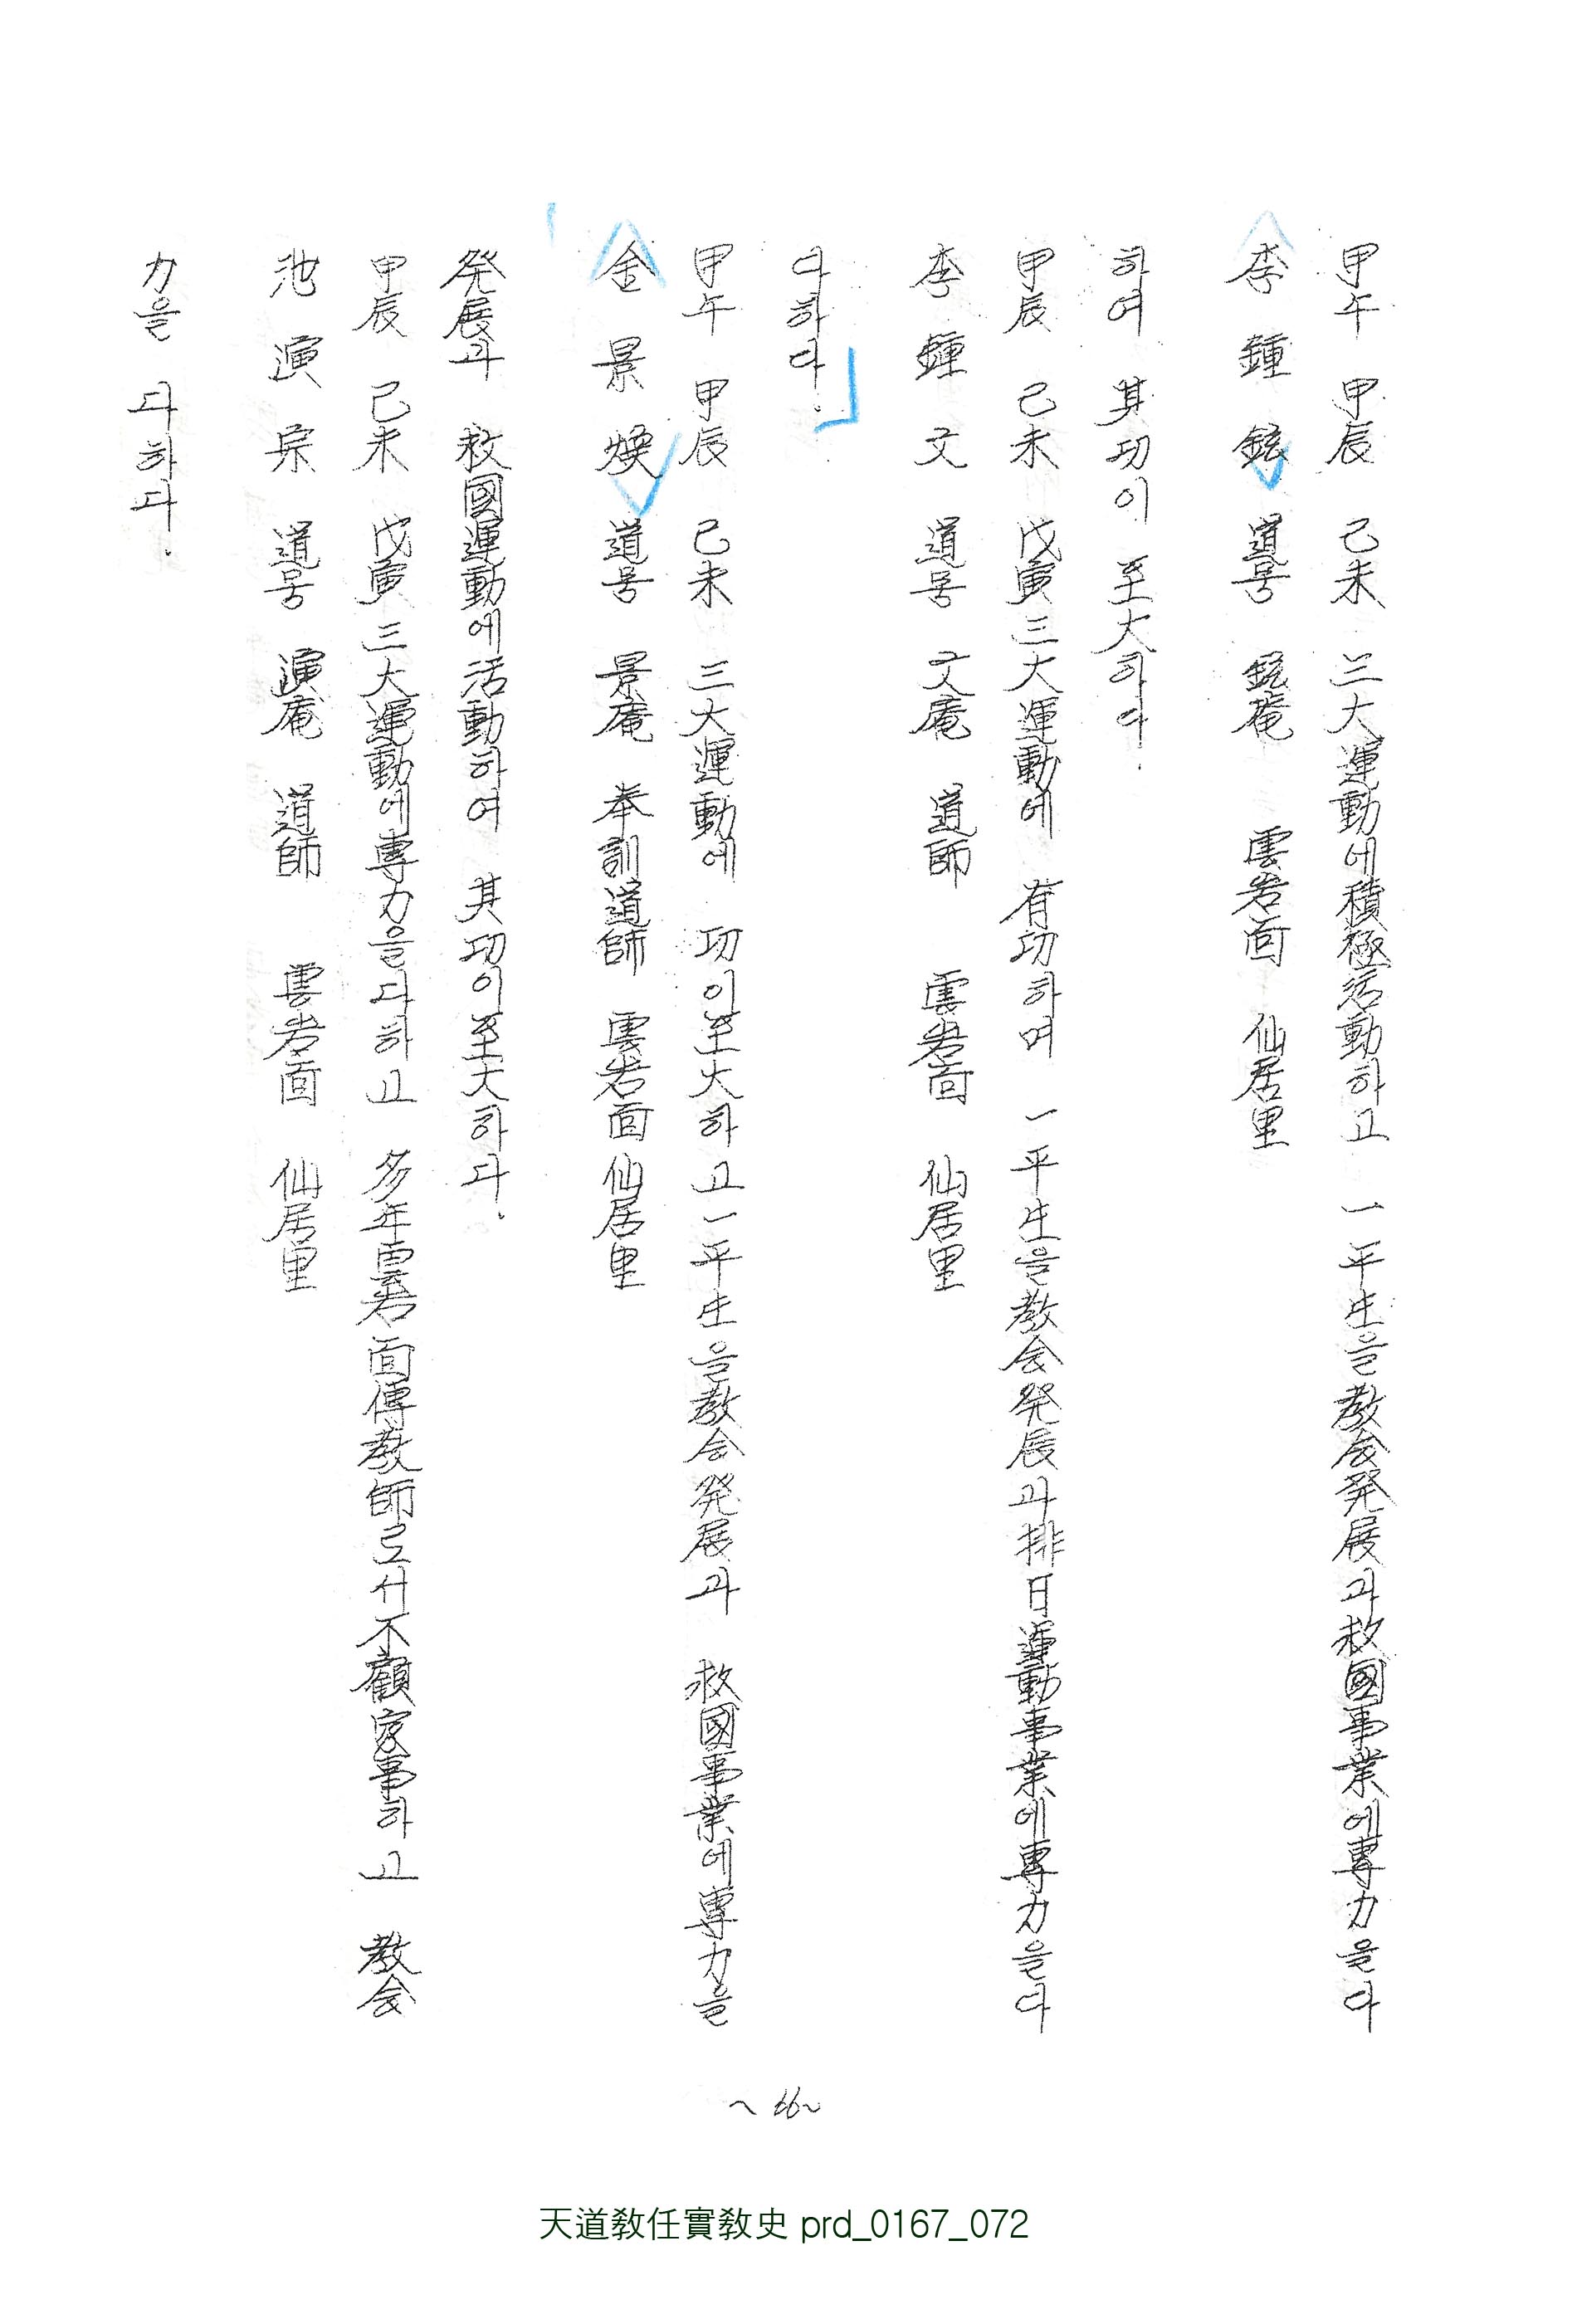 甲午 甲辰 己未 三大運動에積極活動하고 一平生을教会発展과救國事業에專力을다
李鍾鉉 道号 鉉菴 雲岩面 仙居里
하여 其功이 至大하다.
甲辰 己未 戊寅三大運動에 有功하며 一平生을教会発展과排日運動事業에專力을다
李鍾文 道号 文庵 道師 雲岩面 仙居里
다하다.
甲午 甲辰 己未 三大運動에 功이至大하고一平生을教会発展과 救國事業에專力을
金景煥 道号 景庵 奉訓道師 雲岩面 仙居里
発展과 救國運動에活動하여 其功이至大하다.
甲辰 己未 戊寅三大運動에專力을다하고 多年雲岩面傳教師로서不顧家事하고 教会
池演宗 道号 演庵 道師 雲岩面 仙居里
力을 다하다.
~66~
天道敎任實敎史 prd_0167_072